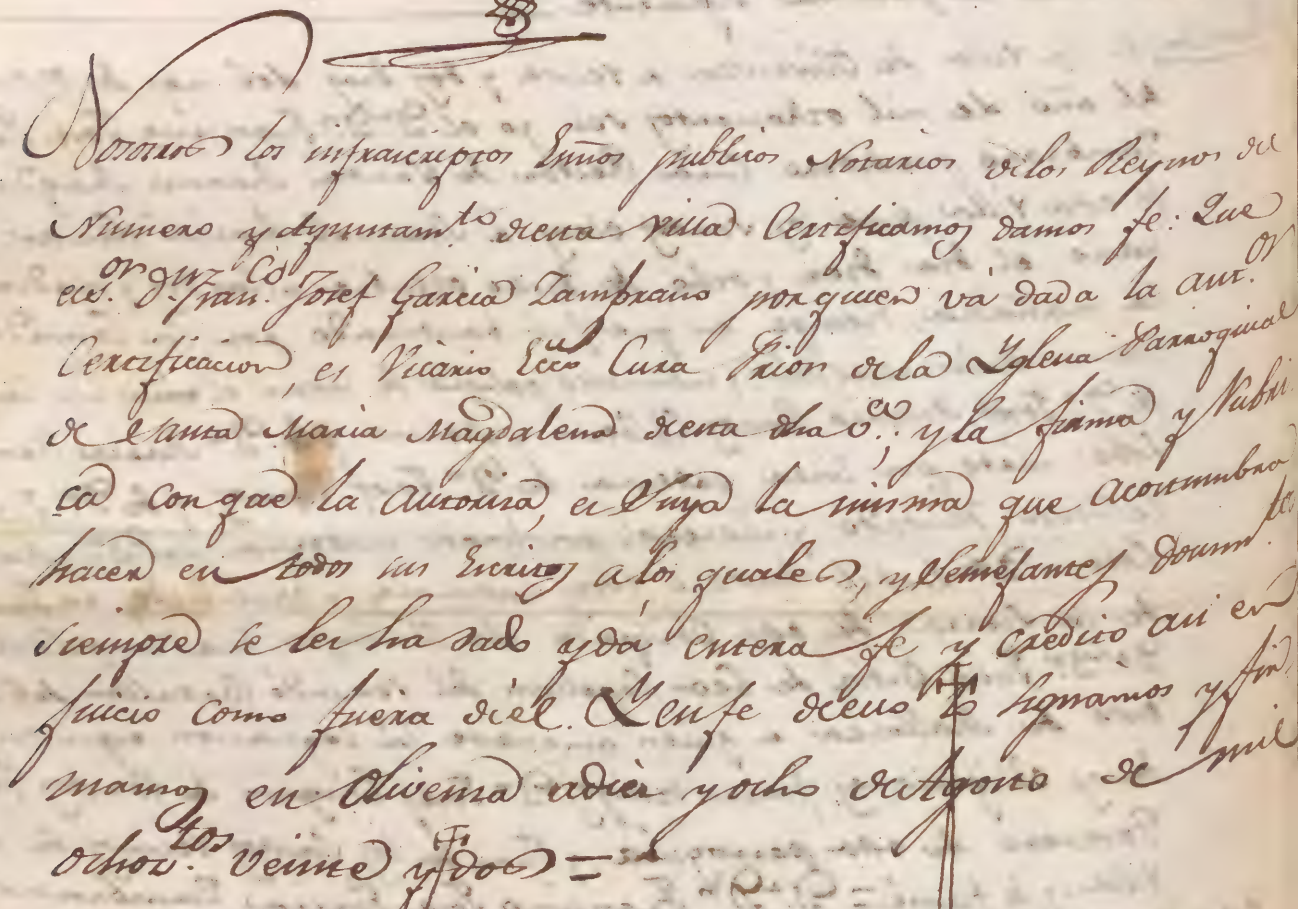 Nosotros los infraescriptos Essnos publicos Notarios delos Reynos del
Numero y Ayuntam.to de esta villa Certificamos damos fe: Que
el S.or D.n Fran.co Josef Garcia Zambrano por quien vá dada la ant.or
Certificacion, es Vicario Ecco Cura Prior de la Yglesia Parroquial
de Santa Maria Magdalena de esta dha v.a; y la firma y Rubri
ca con que la autoriza, es Suya la misma que acostumbra
hacer en todos sus Escritos alos quales, y Semejantes Docum.tos
siempre se les ha dado y dá entera fe y credito asi en
juicio como fuera de el. Y en fe de ello lo signamos y fir
mamos en Olivenza a diez y ocho de Agosto de mil
ochoz.tos veinte y dos =